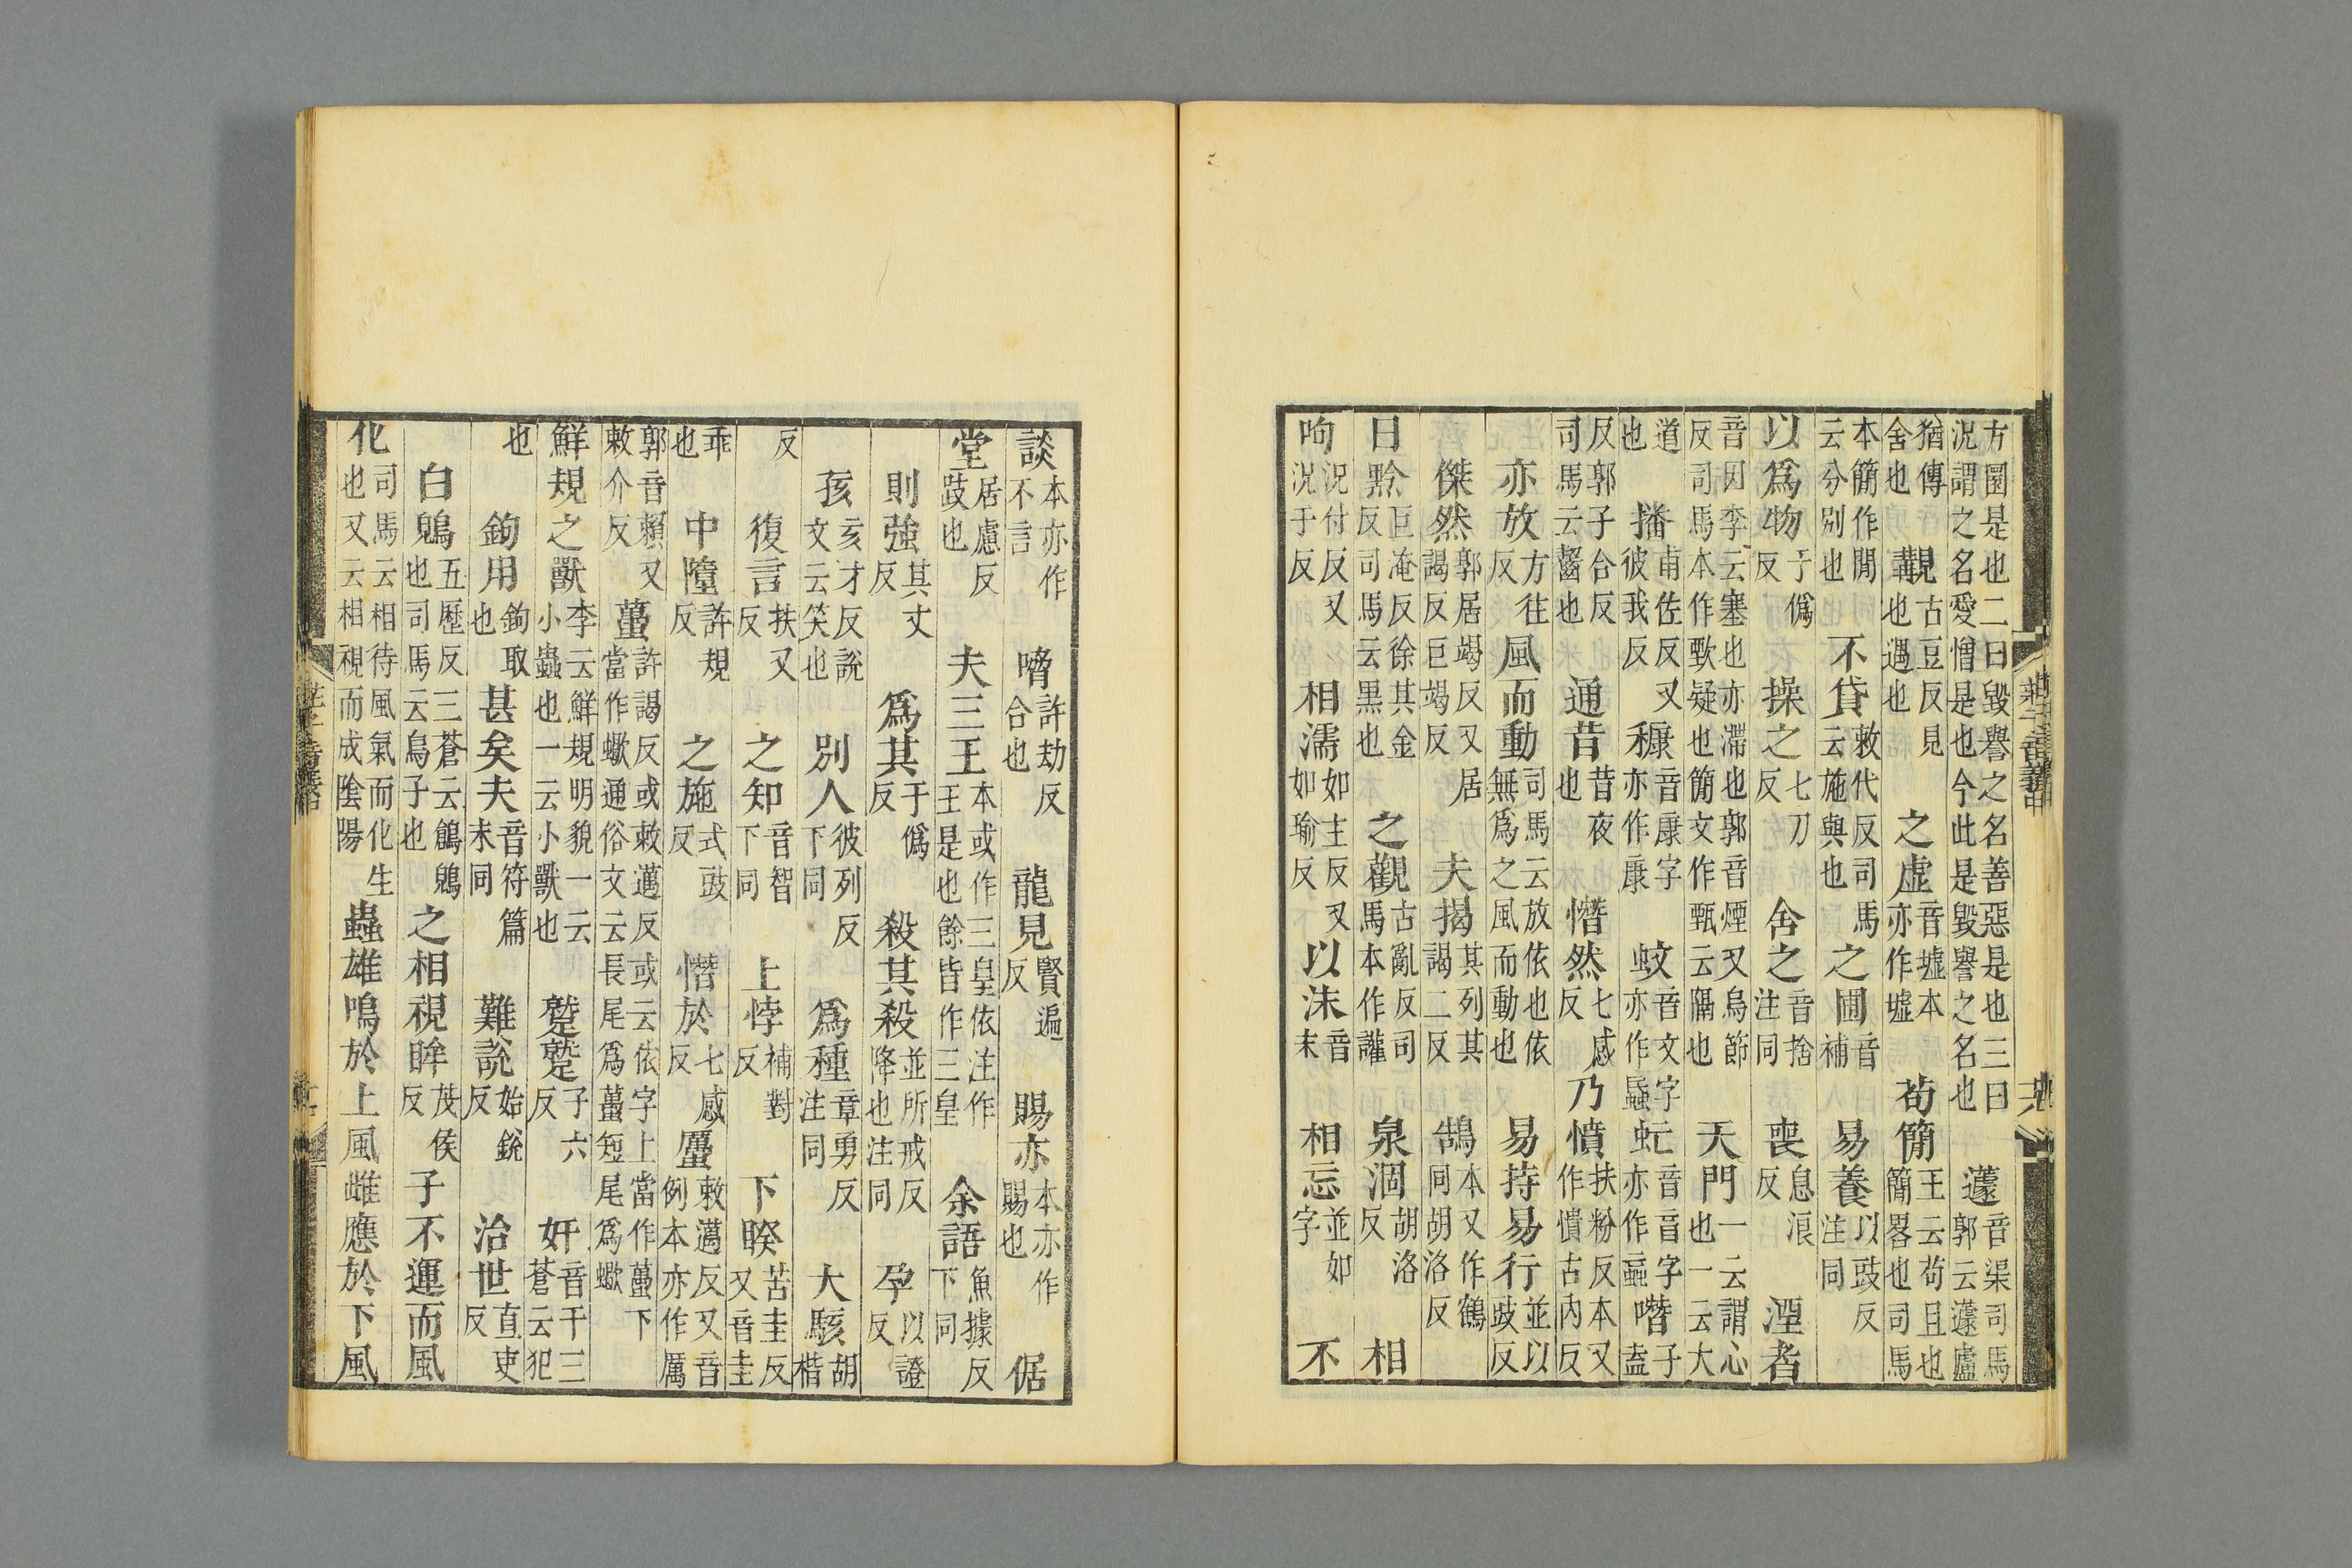 方圜是也二曰毀譽之名善惡是也三曰況謂之名愛憎是也今此是毀譽之名也 蘧音渠司馬郭云蘧廬
猶傳舍也 覯古豆反見也遇也 之虛音墟本亦作墟 苟簡王云苟且也簡畧也司馬
本簡作閒云分別也 不貸敕代反司馬云施與也 之圃音補 易養以豉反注同
以爲物于僞反 操之七刀反 舍之音捨注同 喪息浪反 湮者
音因李云塞也亦滯也郭音煙又烏節反司馬本作歅疑也簡文作甄云隔也 天門一云謂心也一云大
道也 播甫佐反又彼我反 穅音康字亦作康 蚊音文字亦作蟁 虻音盲字亦作蝱 噆子盍
反郭子合反司馬云齧也 通昔昔夜也 憯然七感反 乃憤扶粉反本又作憒古內反
亦放方往反 風而動司馬云放依也依無爲之風而動也 易持易行並以豉反
傑然郭居竭反又居謁反巨竭反 夫揭其列其謁二反 鵠本又作鶴同胡洛反
日黔巨淹反徐其金反司馬云黑也 之觀古亂反司馬本作讙 泉涸胡洛反 相
呴況付反又況于反 相濡如主反又如瑜反 以沫音末 相忘並如字 不
莊子音義中
談本亦作不言 嗋許劫反合也 龍見賢遍反 賜亦本亦作賜也 倨
堂居慮反跂也 夫三王本或作三皇依注作王是也餘皆作三皇 余語魚據反下同
則強其丈反 爲其于僞反 殺其殺並所戒反降也注同 孕以證反
孩亥才反說文云笑也 別人彼列反下同 爲種章勇反注同 大駭胡楷
反 復言扶又反 之知音智下同 上悖補對反 下睽苦圭反又音圭
乖也 中墮許規反 之施式豉反 憯於七感反 蠆敕邁反又音例本亦作厲
郭音賴又敕介反 蠆許謁反或敕邁反或云依字上當作蠆下當作蠍通俗文云長尾爲蠆短尾爲蠍
鮮規之獸李云鮮規明貌一云小蟲也一云小獸也 蹵蹵子六反 奸音干三蒼云犯
也 鉤用鉤取也 甚矣夫音符篇末同 難說始銳反 治世直吏反
白鶂五歷反三蒼云鶬鶂也司馬云鳥子也 之相視眸茂侯反 子不運而風
化司馬云相待風氣而化生也又云相視而成陰陽 蟲雄鳴於上風雌應於下風